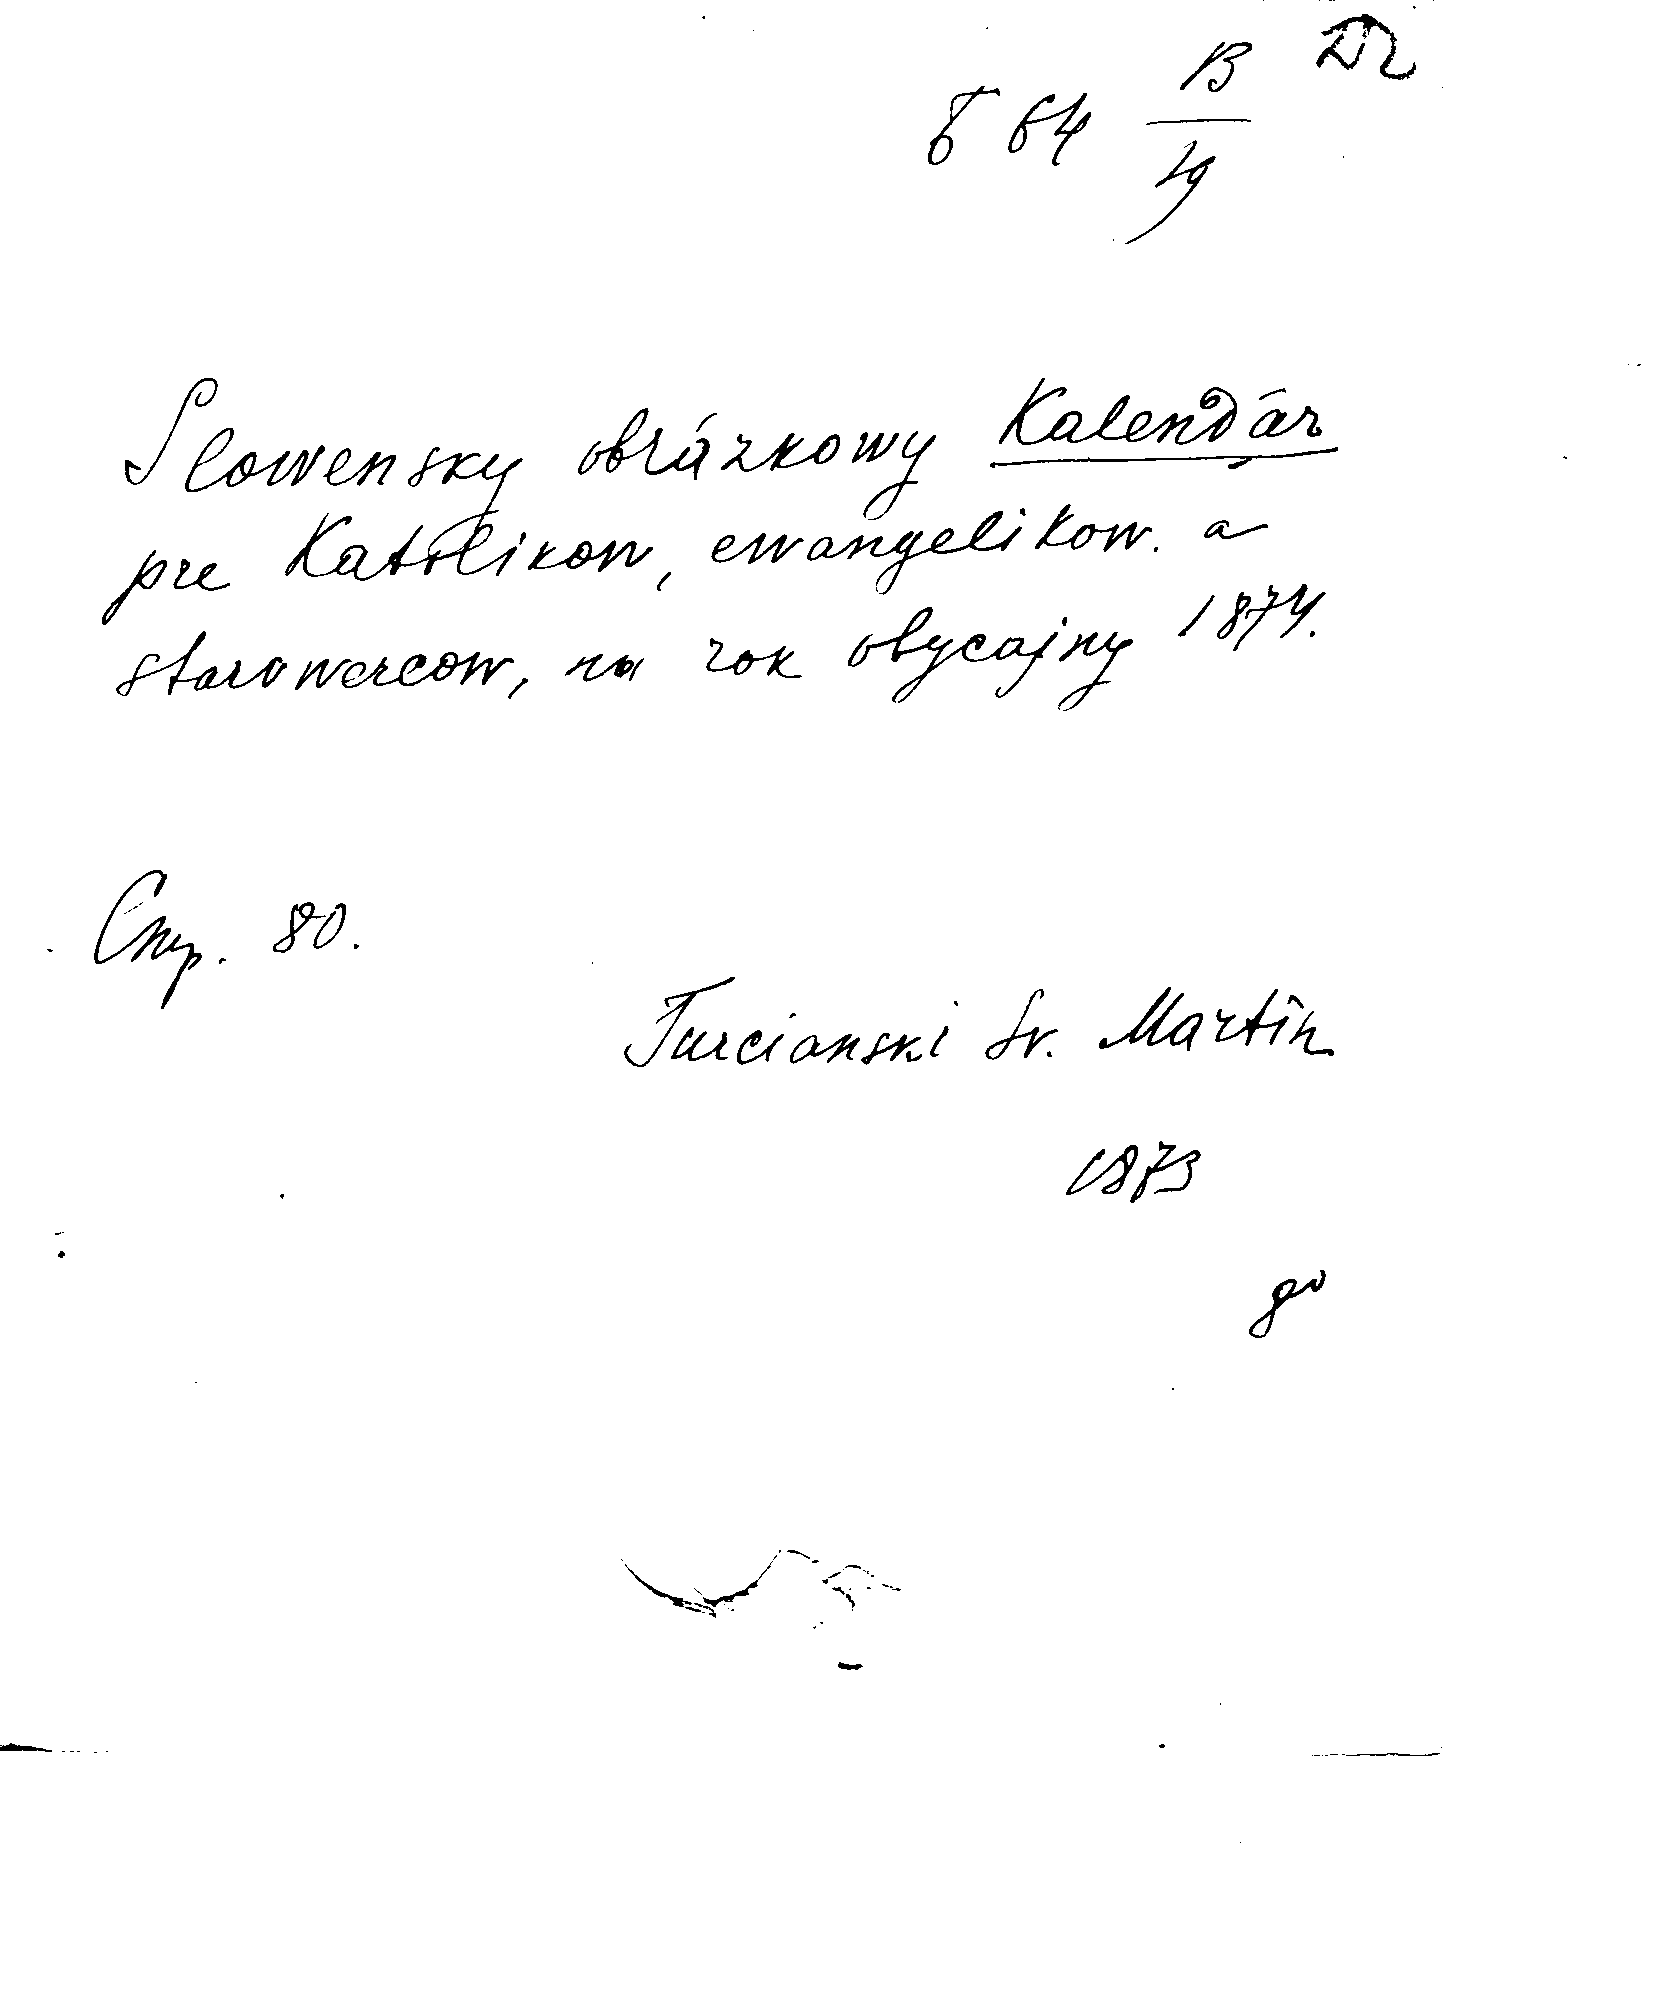 Б 64 B/19
Slowensky obrázkowy Kalendár
pre Katolikow, ewangelikow. a
starowercow, na rok obycajny 1874.
Стр. 80.
Turcianski Sv. Martin
1873
8º